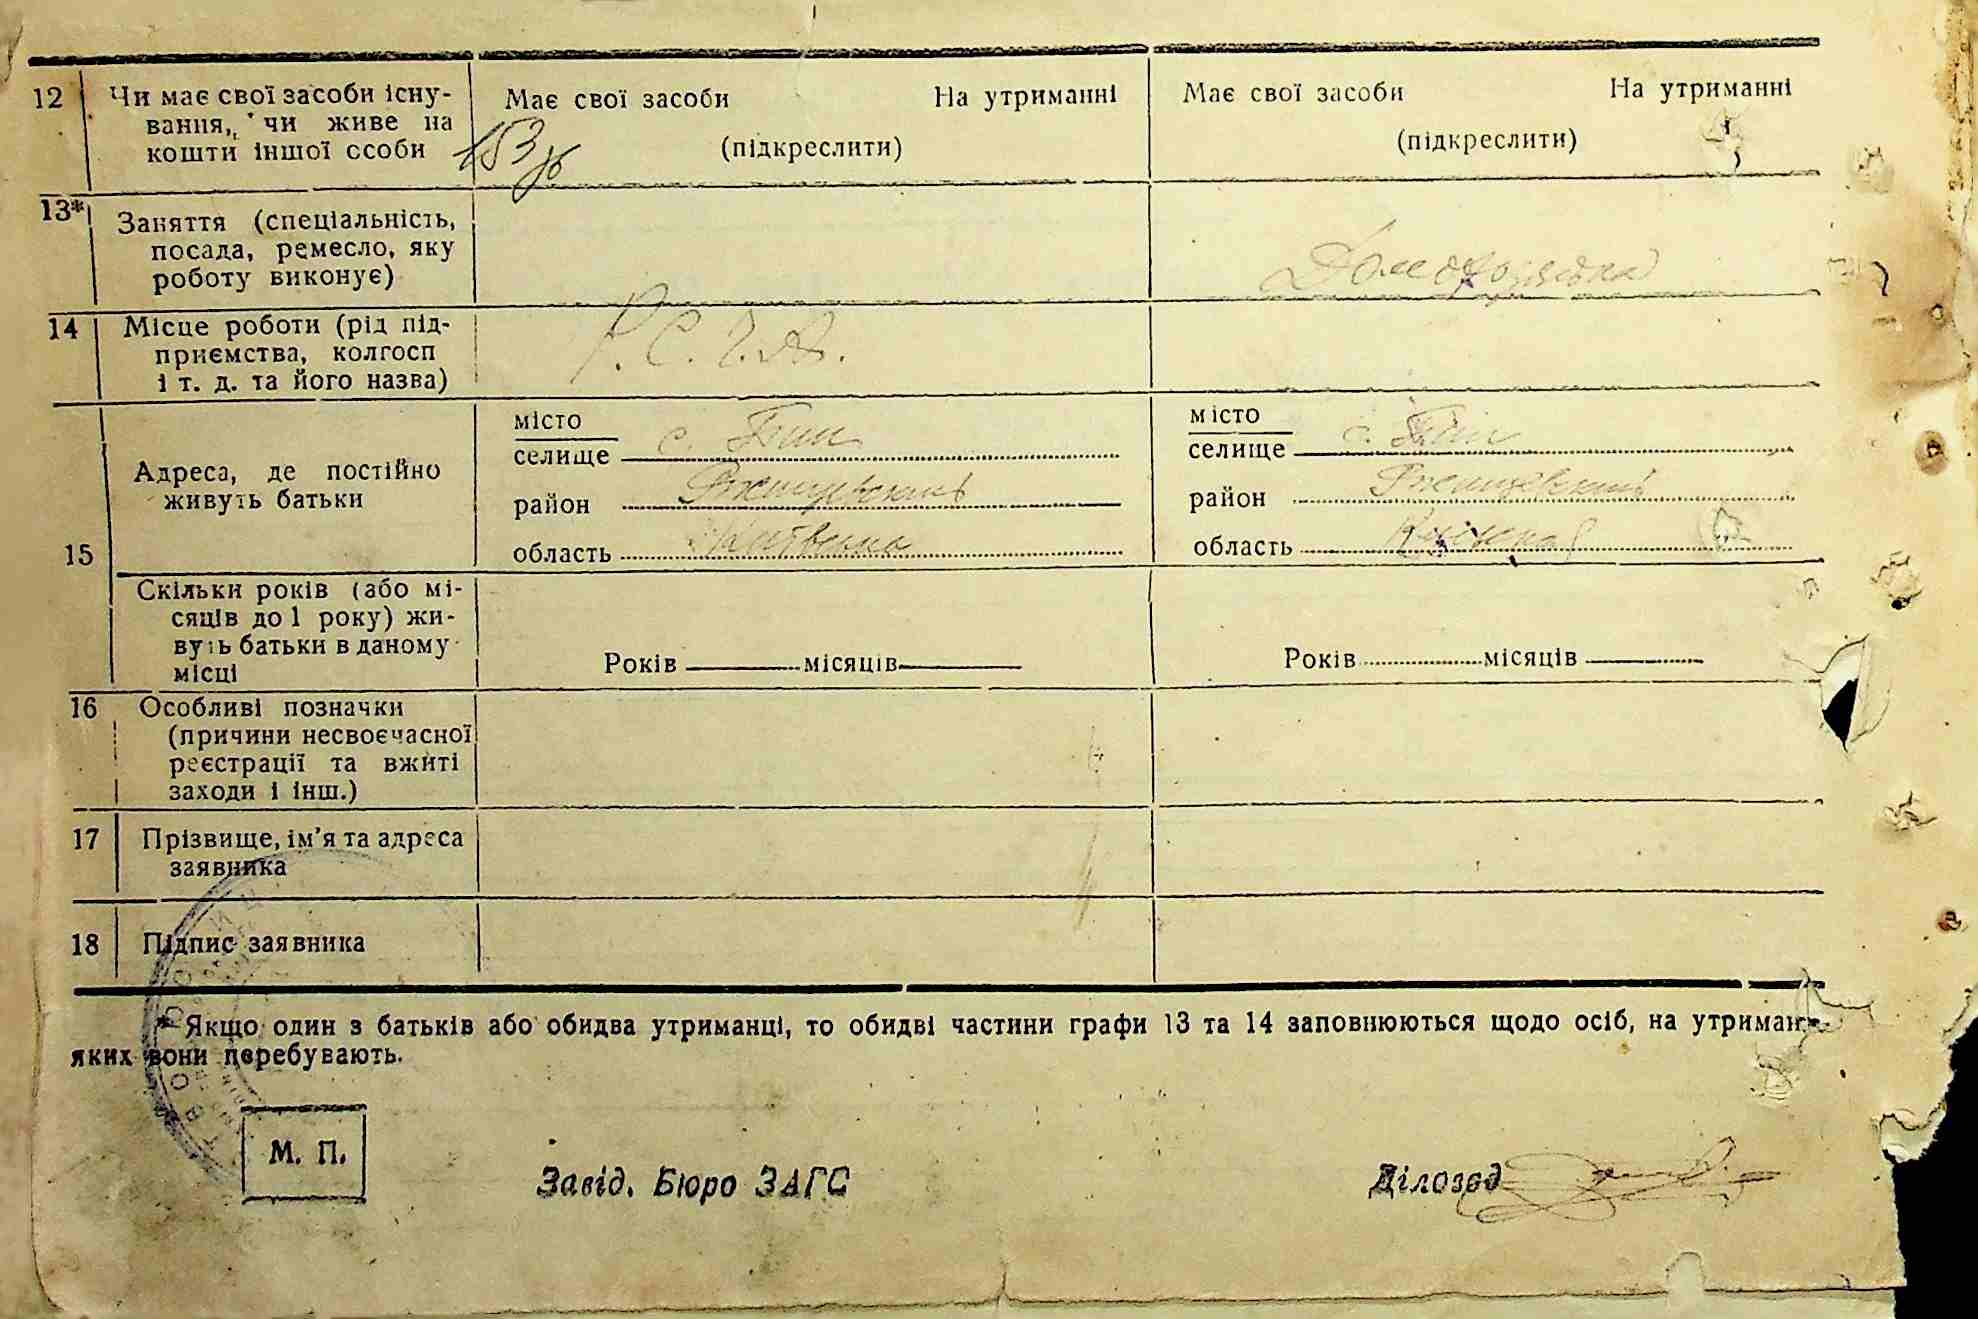 12 Чи має свої засоби існу-
вання, чи живе на
кошти іншої особи
Має свої засоби На утриманні
(підкреслити)
Має свої засоби На утриманні
(підкреслити)
153
13* Заняття (спеціальність,
посада, ремесло, яку
роботу виконує)
Домохозяйка
14 Місце роботи (рід під-
приємства, колгосп
і т. д. та його назва)
15 Адреса, де постійно
живуть батьки
місто
селище с.
район Ржищевский
область
місто
селище с.
район Ржищевский
область Киевская
Скільки років (або мі-
сяців до 1 року) жи-
вуть батьки в даному
місці
Років місяців
Років місяців
16 Особливі позначки
(причини несвоєчасної
реєстрації та вжиті
заходи і інш.)
17 Прізвище, ім'я та адреса
заявника
18 Підпис заявника
* Якщо один з батьків або обидва утриманці, то обидві частини графи 13 та 14 заповнюються щодо осіб, на утриман
яких вони перебувають.
М. П.
Завід. Бюро ЗАГС
Діловод